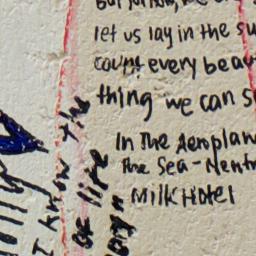 let us lay in the su
count every beau
thing we can s
In The Aeroplan
The Sea - Neutr
Milk Hotel
I know the